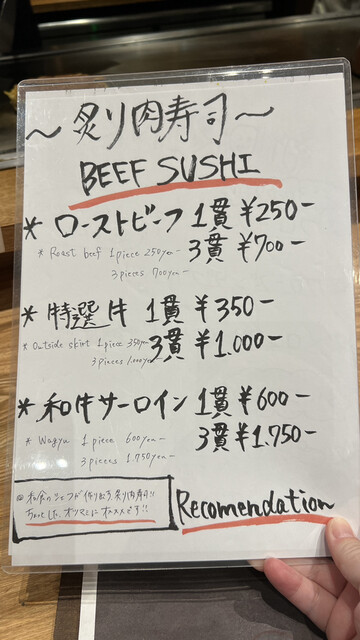 ～炙り肉寿司～
BEEF SUSHI
* ローストビーフ 1貫 ¥250-
* Roast beef 1piece 250yen-
3貫 ¥700-
3pieces 700yen-
* 特選牛 1貫 ¥350-
* Outside skirt 1piece 350yen
3貫 ¥1.000-
3pieces 1.000yen-
* 和牛サーロイン 1貫 ¥600-
* Wagyu 1piece 600yen-
3貫 ¥1.750-
3pieces 1.750yen-
和食のシェフが作り出す炙り肉寿司
ちょっとした、オツマミにオススメです!!
Recomendation